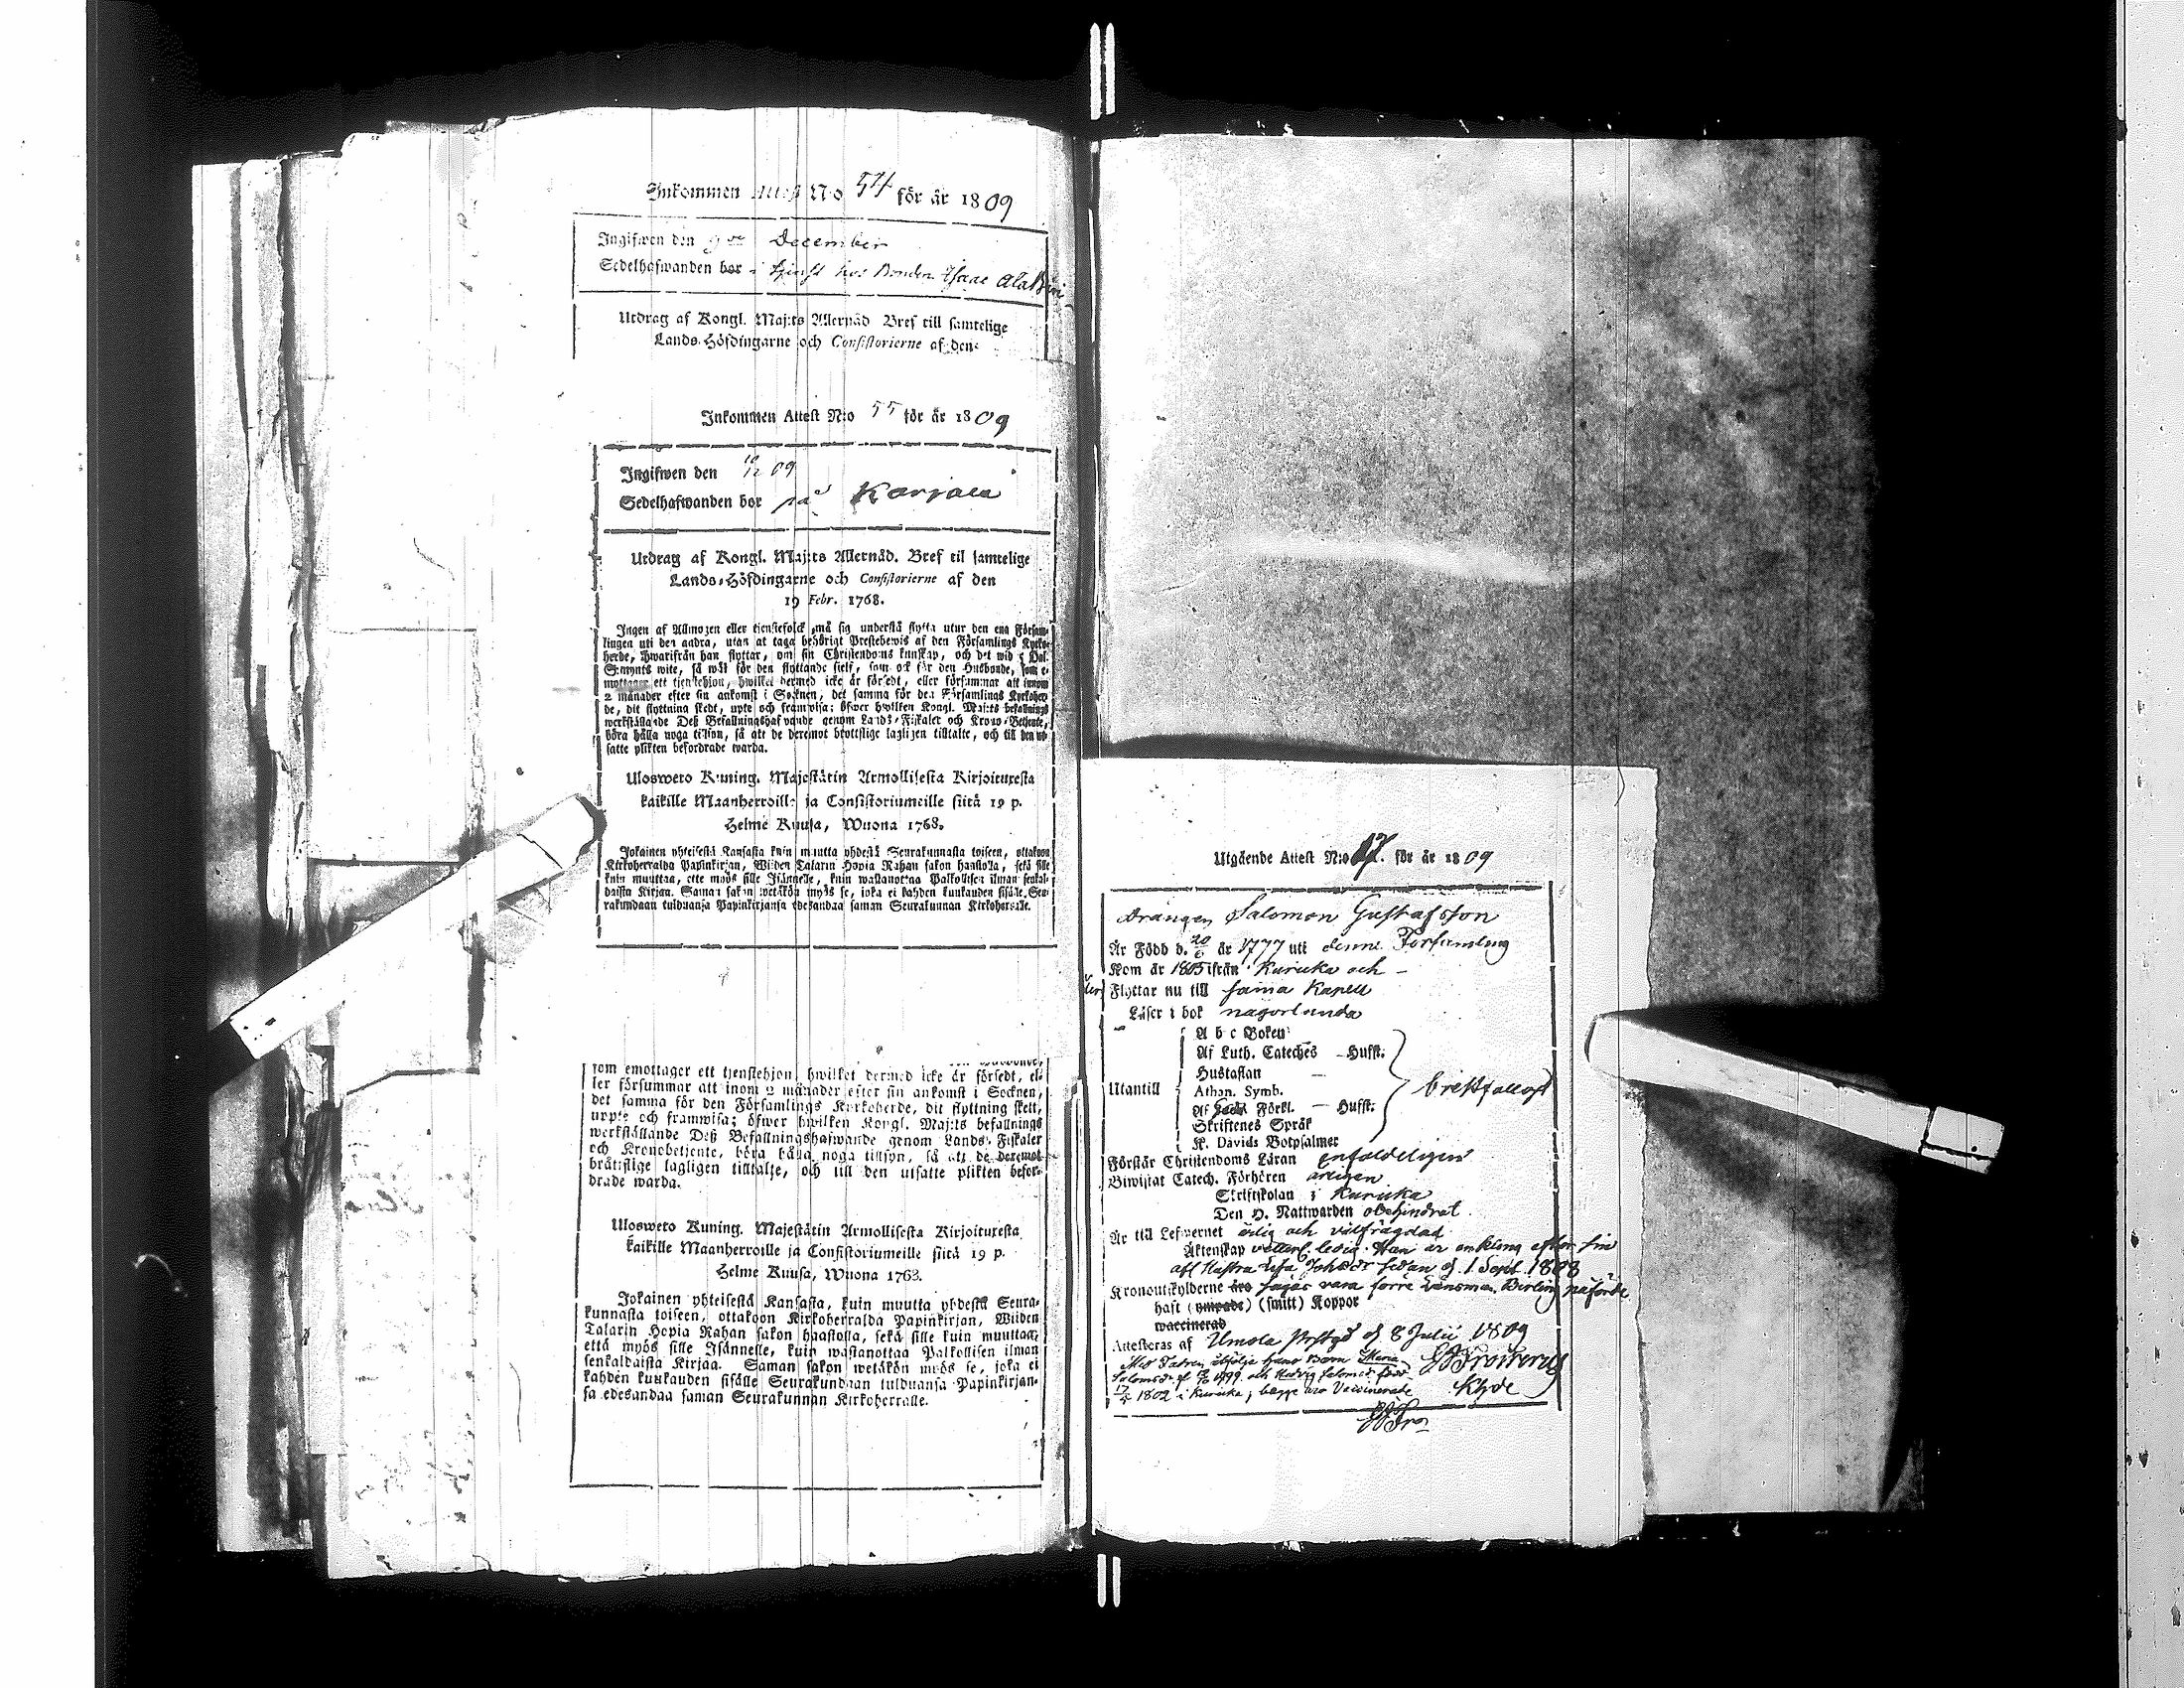 Inkommen Attest No 54 för år 1809
Ingifwen den 9de December
Sedelhafwanden bor i tjenst hos Bonden Isaac
Utdrag af Kongl. Maj:ts Allernåd Bref till samtelige
Lands-Höfdingarne och Consistorierne af den
Inkommen Attest N:o 55 för år 1809
Ingifwen den 10/12 09
Sedelhafwanden bor på Karjala
Utdrag af Kongl. Maj:ts Allernåd. Bref til samtelige
Lands-Höfdingarne och Consistorierne af den
19 Febr. 1768.
Ingen af Allmogen eller tjenstefolck må sig understå flytta utur den ena Försam-
lingen uti den andra, utan at taga behörigt Prestebewis af den Församlings Kyrko-
herde, hwarifrån han flyttar, om sin Christendoms kunskap, och det wid 5 Dal.
S:mynts wite, så wäl för den flyttande sielf, som ock för den Husbonde, som e-
mottager ett tjenstehjon, hwilket dermed icke är försedt, eller försummar att innom
2 månader efter sin ankomst i Socknen, det samma för den Församlings Kyrkoher-
de, dit flyttning skedt, upte och framwisa; öfwer hwilken Kongl. Maj:ts befallnings
werkställande Deß Befallningshafwande genom Lands-Fiskaler och Krono-Betiente,
böra hålla noga tillsyn, så att de deremot brottslige lagligen tilltalte, och till den ut-
satte plikten befordrade warda.
Ulosweto Kuning. Majestätin Armollisesta Kirjoituxesta
kaikille Maanherroille ja Consistoriumeille siitä 19 p.
Helme Kuusa, Wuona 1768.
Jokainen yhteisestä Kansasta kuin muutta yhdestä Seurakunnasta toiseen, ottakoon
Kirkoherralda Papinkirjan, Wiiden Talarin Hopia Rahan sakon haastolla, sekä sille
kuin muuttaa, ette myös sille Isännelle, kuin wastanottaa Palkollisen ilman senkal-
daista Kirjaa. Saman sakon wetäkön myös se, joka ei kahden kuukauden sisälle Seu-
rakundaan tulduansa Papinkirjansa edesandaa saman Seurakunnan Kirkoherralle.
som emottager ett tjenstehjon, hwilket dermed icke är försedt, el-
ler försummar att inom 2 månader efter sin ankomst i Socknen,
det samma för den Församlings Kyrkoherde, dit flyttning skett,
uppte och framwisa; öfwer hwilken Kongl. Maj:ts befallnings
werkställande Deß Befallningshafwande genom Lands-Fiskaler
och Kronobetjente, böra hålla noga tillsyn, så att de deremot
bråttslige lagligen tilltalte, och till den utsatte plikten befor-
drade warda.
Ulosweto Kuning. Majestätin Armollisesta Kirjoituxesta
kaikille Maanherroille ja Consistoriumeille siitä 19 p.
Helme Kuusa, Wuona 1763.
Jokainen yhteisestä Kansasta, kuin muutta yhdestä Seura-
kunnasta toiseen, ottakoon Kirkoherralda Papinkirjan, Wiiden
Talarin Hopia Rahan sakon haastolla, sekä sille kuin muuttaa,
että myös sille Isännelle, kuin wastanottaa Palkollisen ilman
senkaldaista Kirjaa. Saman sakon wetäkön myös se, joka ei
kahden kuukauden sisälle Seurakundaan tulduansa Papinkirjan-
sa edesandaa saman Seurakunnan Kirkoherralle.
Utgående Attest N:o 17. för år 1809
Drängen Salomon Gustafsson
Är Född d. 20/6 år 1777 uti denne Församling
Kom år 1805 ifrån Kuricka och
Flyttar nu till sama Kapell
Läser i bok någorlunda
A b c Boken
Af Luth. Cateches Hufst.
Hustaflan
Utantill
Athan. Symb.
Af Förkl. Hufst.
Skriftenes Språk
K. Davids Botpsalmer
bristfälligt
Förstår Christendoms Läran enfaldeligen
Biwistat Catech. Förhören årligen
Skriftskolan i Kuricka
Den H. Nattwarden obehindrat
Är till Lefwernet ärlig och välfrägdad
Äktenskap ledig. Han är enkling efter sin
afl Hustru Lisa Johsdr sedan d. 1 Sept. 1808
Kronoutskylderne äro säges vara förre Länsman Berling påförde
haft (ympade) (smitt) Koppor
waccinerad
Attesteras af Ilmola Prstgd d 8 Julii 1809
Med Fadren åtfölja hans Barn Maria
Salomsdr 1799 och Hedvig Salomsdr född
1802 i Kuricka; begge äro Vaccinerade